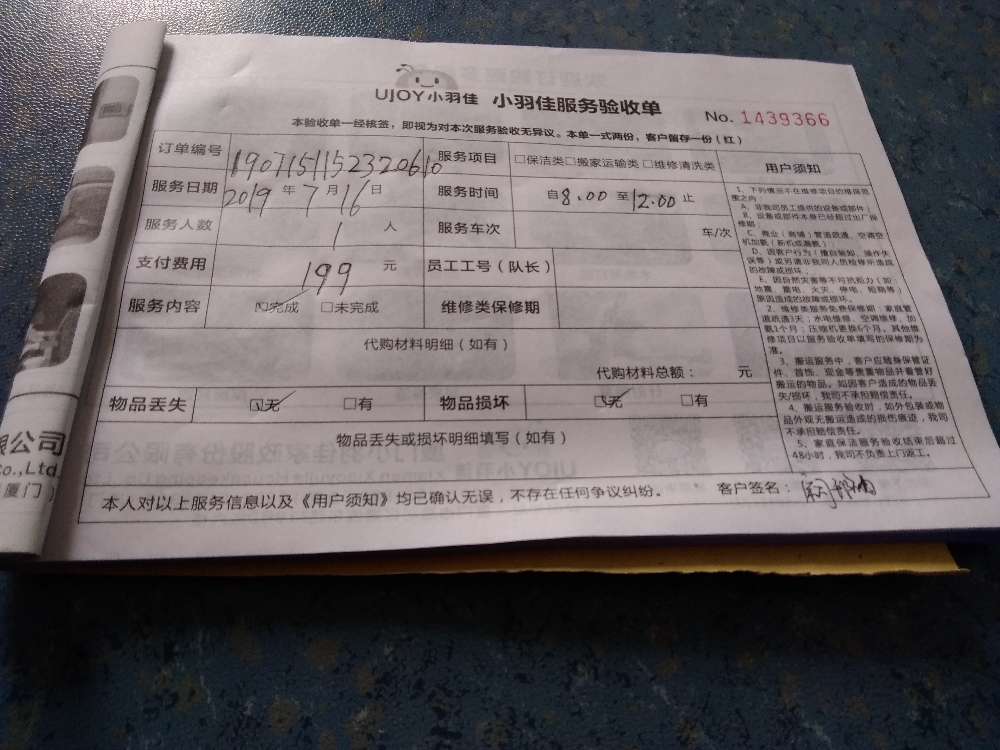 UJOY小羽佳 小羽佳服务验收单
No. 1439366
本验收单一经核签，即视为对本次服务验收无异议。本单一式两份，客户留存一份（红）
订单编号 1907151152320610 服务项目 □保洁类□搬家运输类□维修清洗类 用户须知
服务日期 2019 年 7 月 16 日 服务时间 自 8.00 至 12.00 止
服务人数 1 人 服务车次 车/次
支付费用 199 元 员工工号（队长）
服务内容 ☑完成 □未完成 维修类保修期
代购材料明细（如有）
代购材料总额： 元
物品丢失 ☑无 □有 物品损坏 ☑无 □有
物品丢失或损坏明细填写（如有）
本人对以上服务信息以及《用户须知》均已确认无误，不存在任何争议纠纷。 客户签名：
1、下列情况不在维修项目的维保范
围之内
A、非我司员工提供的设备或部件；
B、设备或部件本身已经超过出厂保
修期
C、商业（商铺）管道疏通、空调空
机加氟（新机或漏氟）
D、因客户行为（擅自装卸、操作失
误等）或另请非我司人员检修所造成
的故障或损坏
E、因自然灾害等不可抗拒力（如
地震、雷电、火灾、停电、短路等）
原因造成的故障或损坏。
2、维修类服务免费保修期：家庭管
道疏通3天；水电维修、空调维修、加
氟1个月；压缩机更换6个月。其他维
修项目以服务验收单填写的保修期为
准。
3、搬运服务中，客户应随身保管证
件、首饰、现金等贵重物品并看管好
搬运的物品。如因客户造成的物品丢
失/损坏，我司不承担赔偿责任。
4、搬运服务验收时，如外包装或物
品外观无搬运造成的损伤痕迹，我司
不承担赔偿责任。
5、家庭保洁服务验收结束后超过
48小时，我司不负责上门返工。
限公司
Co.,Ltd.
厦门）